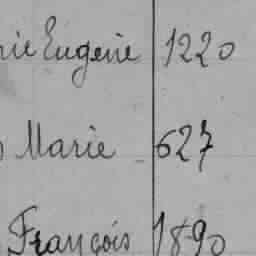 Eugénie 1220
Marie 627
François 1890